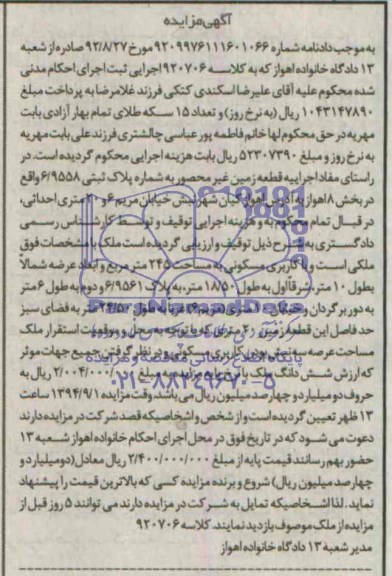 آگهی مزایده
به موجب دادنامه شماره ۹۲۰۹۹۷۶۱۱۱۶۰۱۰۶۶ مورخ ۹۲/۸/۲۷ صادره از شعبه
۱۳ دادگاه خانواده اهواز که به کلاسه ۹۲۰۷۰۶ اجرایی ثبت اجرای احکام مدنی
شده محکوم علیه آقای علیرضا اسکندی کتکی فرزند غلامرضا به پرداخت مبلغ
۱۰۴۳۱۴۷۸۹۰ ریال (به نرخ روز) و تعداد ۱۵ سکه طلای تمام بهار آزادی بابت
مهریه در حق محکوم لها خانم فاطمه پور عباسی چالشتری فرزند علی بابت مهریه
به نرخ روز و مبلغ ۵۲۳۰۷۳۹۰ ریال بابت هزینه اجرایی محکوم گردیده است. در
راستای مفاد اجراییه قطعه زمین غیر محصور به شماره پلاک ثبتی ۶/۹۵۵۸ واقع
در بخش ۸ اهواز به آدرس اهواز کیان شهر نبش خیابان مریم ۶ و ۲۰ متری احداثی،
در قبال تمام محکوم به و هزینه اجرایی توقیف و توسط کارشناس رسمی
دادگستری به شرح ذیل توقیف و ارزیابی گردیده است ملک با مشخصات فوق
ملکی است و با کاربری مسکونی به مساحت ۲۴۵ متر مربع و ابعاد عرصه شمالا
بطول ۱۰ متر، شرقا اول به طول ۱۸/۵۰ متر، به پلاک ۶/۹۵۶۱ و دوم به طول ۶ متر
به دور برگردان و خیابان ۱۰ متری (مریم ۶) غربا به طول ۲۴/۵۲ متر به فضای سبز
حد فاصل این قطعه زمین ۲۰ متری که با توجه به محل و موقعیت استقرار ملک
مساحت عرصه سه نبش بودن کاربری مسکونی و در نظر گرفتن جمیع جهات موثر
که ارزش شش دانگ ملک بابت مزایده به مبلغ ۲/۰۰۴/۰۰۰/۰۰۰ ریال به
حروف دو میلیارد و چهارصد میلیون ریال می باشد. وقت مزایده ۱۳۹۴/۹/۱ ساعت
۱۳ ظهر تعیین گردیده است و از شخص و اشخاصیکه قصد شرکت در مزایده دارند
دعوت می شود که در تاریخ فوق در محل اجرای احکام خانواده اهواز شعبه ۱۳
حضور بهم رسانند قیمت پایه از مبلغ ۲/۴۰۰/۰۰۰/۰۰۰ ریال معادل (دو میلیارد و
چهارصد میلیون ریال) شروع و برنده مزایده کسی که بالاترین قیمت را پیشنهاد
نماید. لذا اشخاصیکه تمایل به شرکت در مزایده دارند می توانند ۵ روز قبل از
مزایده از ملک موصوف بازدید نمایند. کلاسه ۹۲۰۷۰۶
مدیر شعبه ۱۳ دادگاه خانواده اهواز
ParsNamadData
پایگاه اطلاع رسانی
۰۲۱-۸۸۳۴۹۶۷۰-۵